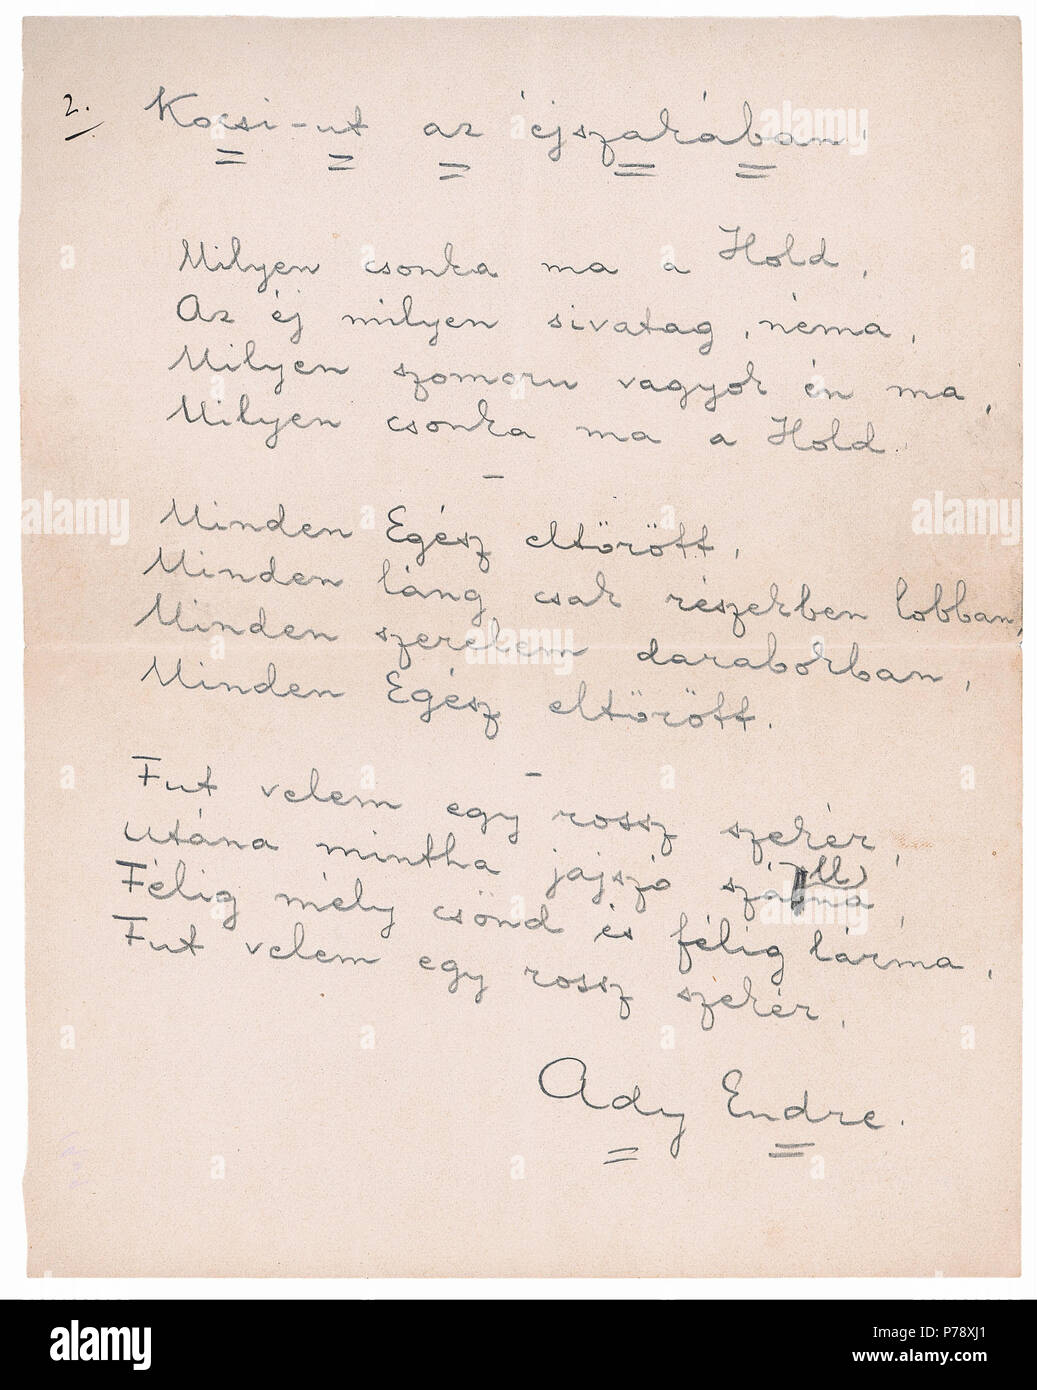 2.
Kocsi-ut az éjszakában.
Milyen csonka ma a Hold,
Az éj milyen sivatag, néma,
Milyen szomoru vagyok én ma,
Milyen csonka ma a Hold.
–
Minden Egész eltörött,
Minden láng csak részekben lobban,
Minden szerelem darabokban,
Minden Egész eltörött.
–
Fut velem egy rossz szekér,
Utána mintha jajszó szállna,
Félig mély csönd és félig lárma,
Fut velem egy rossz szekér.
Ady Endre.
alamy
Image ID: P78XJ1
www.alamy.com